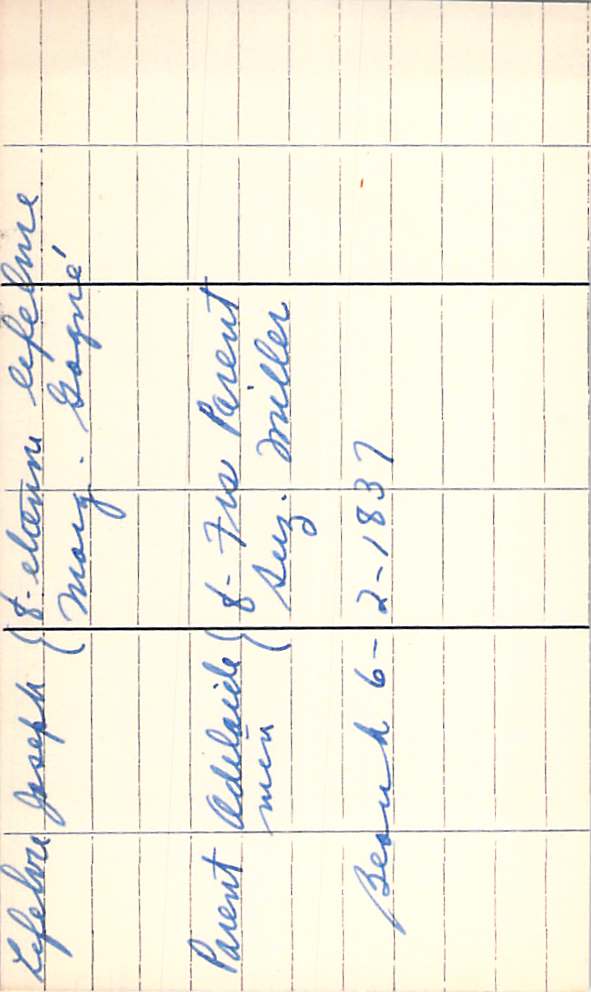 Lefebvre Joseph { f- etienne Lefebvre
Marg. Gagné
Parent Adelaide { f- Frs Parent
min Suz. Miller
Beauch 6-2-1837